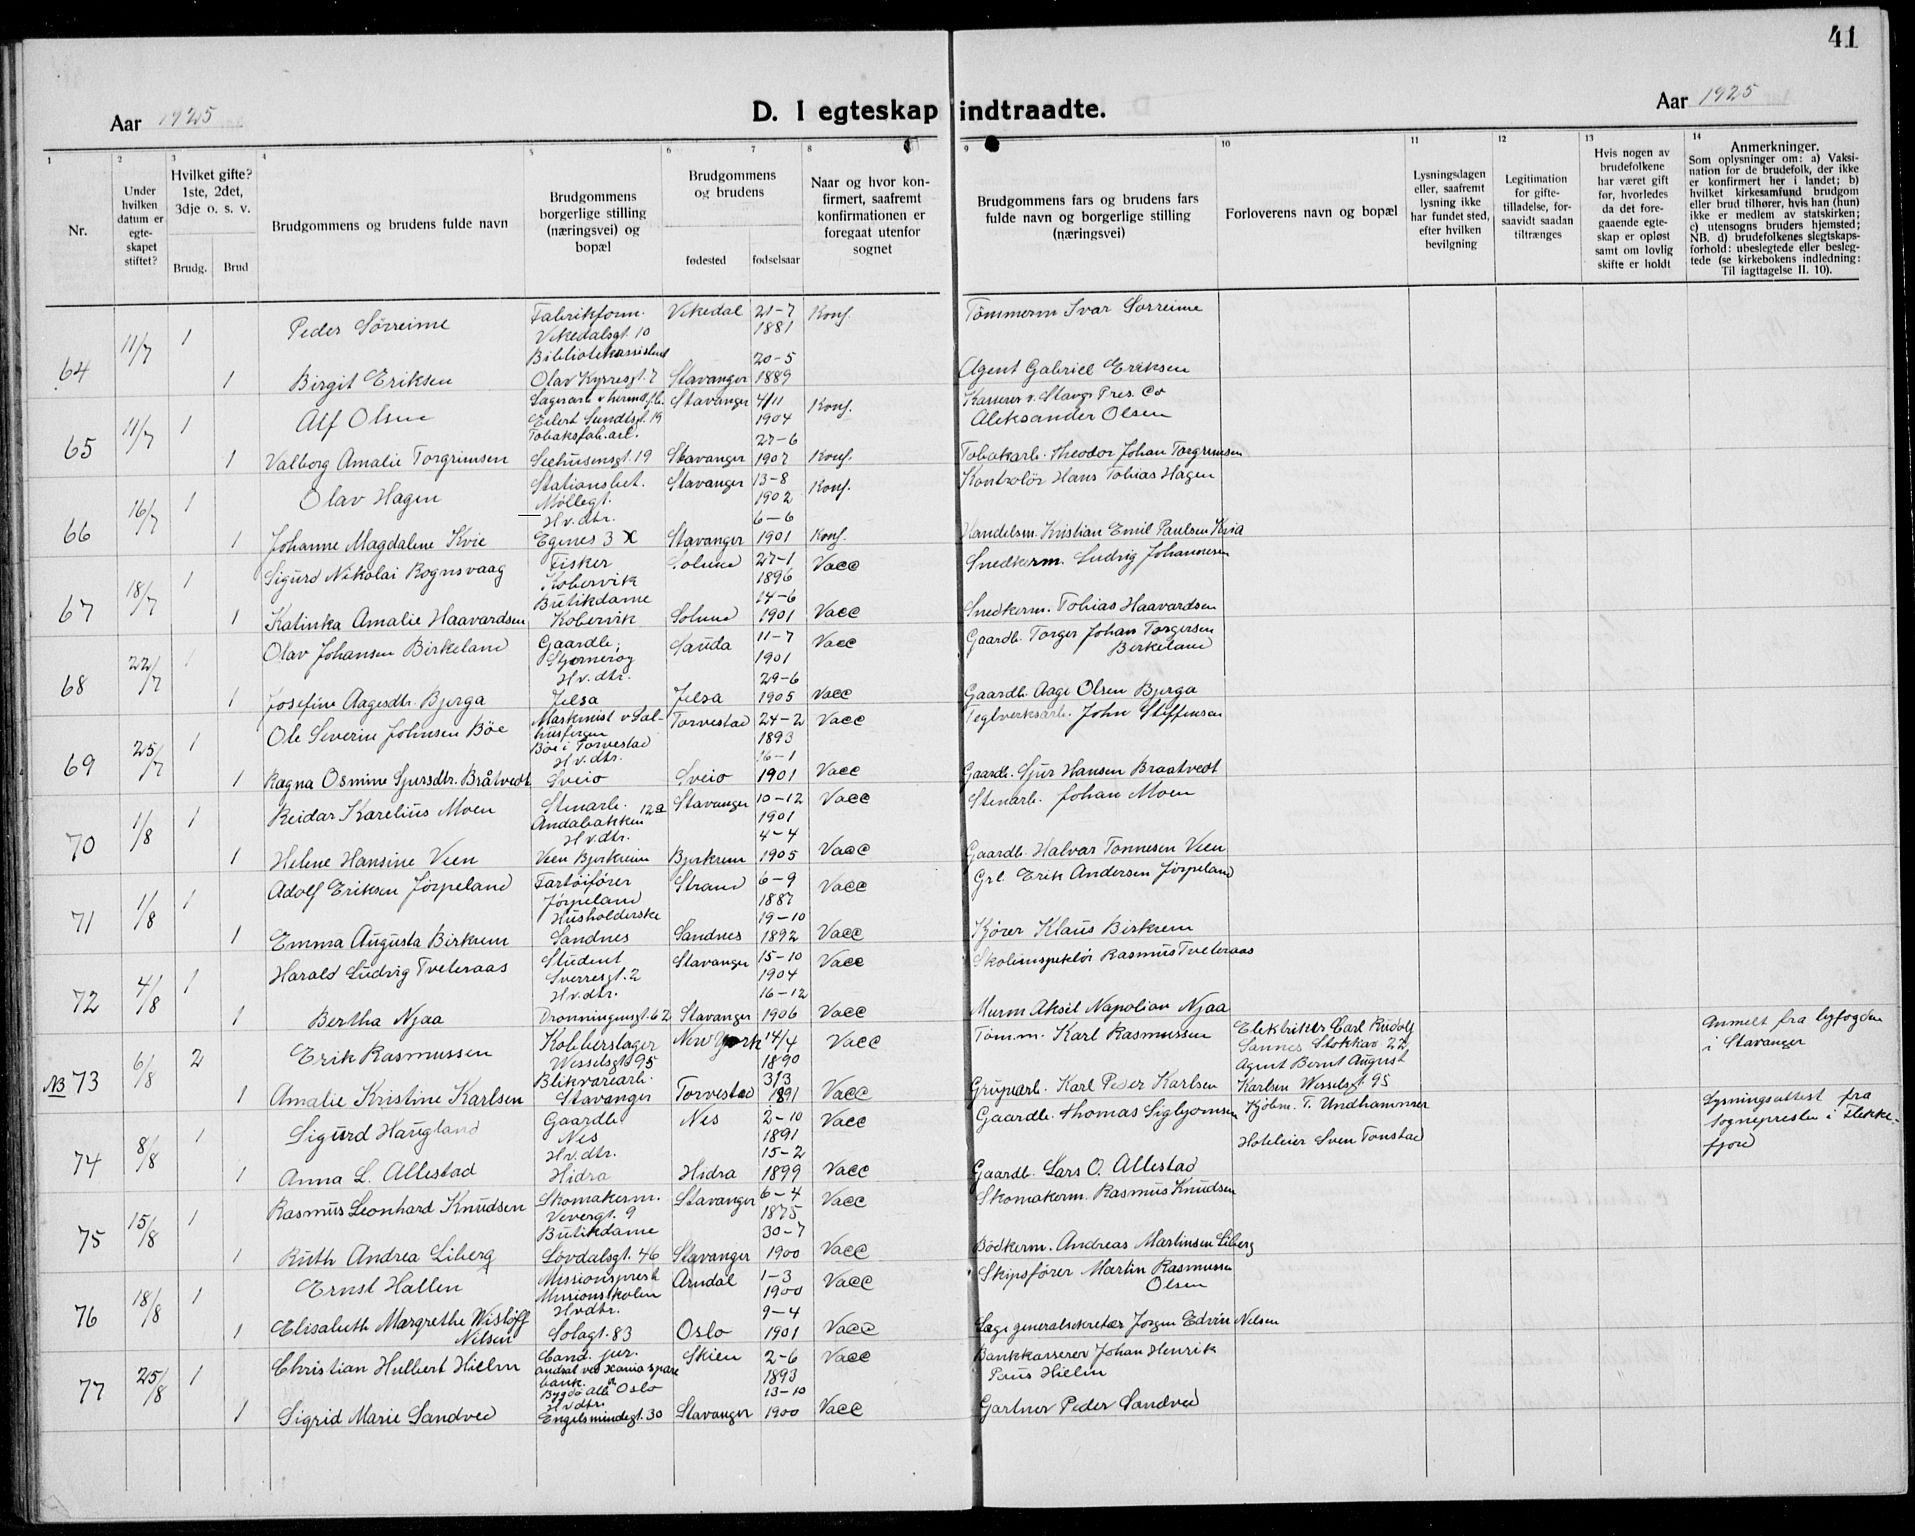 41
Aar 1925
D. I egteskap indtraadte.
Aar 1925
1 2 3 4 5 6 7 8 9 10 11 12 13 14
Nr.
Under hvilken datum er egteskapet stiftet?
Hvilket gifte? 1ste, 2det, 3dje o. s. v.
Brudg. Brud
Brudgommens og brudens fulde navn
Brudgommens borgerlige stilling (næringsvei) og bopæl
Brudgommens og brudens
fødested fødselsaar
Naar og hvor konfirmert, saafremt konfirmationen er foregaat utenfor sognet
Brudgommens fars og brudens fars fulde navn og borgerlige stilling (næringsvei)
Forloverens navn og bopæl
Lysningsdagen eller, saafremt lysning ikke har fundet sted, efter hvilken bevilgning
Legitimation for giftetilladelse, forsaavidt saadan tiltrænges
Hvis nogen av brudefolkene har været gift før, hvorledes da det foregaaende egteskap er opløst samt om lovlig skifte er holdt
Anmerkninger.
Som oplysninger om: a) Vaksination for de brudefolk, der ikke er konfirmert her i landet; b) hvilket kirkesamfund brudgom eller brud tilhører, hvis han (hun) ikke er medlem av statskirken; c) utensogns bruders hjemsted; NB. d) brudefolkenes slegtskapsforhold: ubeslegtede eller beslegtede (se kirkebokens indledning: Til iagttagelse II. 10).
64 11/7 1 Peder Sørreime Fabrikform. Vikedalsgt. 10 Vikedal 21-7 1881 Konf. Tømmerm Ivar Sørreime
1 Birgit Eriksen Bibliotekassistent Olav Kyrresgt. 7 Stavanger 20-5 1889 Agent Gabriel Eriksen
65 11/7 1 Alf Olsen Lagerarb v hermt.fb. Eilert Sundtsgt. 19 Stavanger 4/11 1904 Konf. Kasserer v. Stavgr Pres. Co Aleksander Olsen
1 Valborg Amalie Torgrimsen Tobaksfab.arb. Seehusensgt. 19 Stavanger 27-6 1907 Konf. Tobakarb. Theodor Johan Torgrimsen
66 16/7 1 Olav Hagen Stationsbet. Møllegt. Stavanger 13-8 1902 Konf. Kontrolør Hans Tobias Hagen
1 Johanne Magdalene Kvie Hv.dtr. Egenes 3 X Stavanger 6-6 1901 Konf. Handelsm. Kristian Emil Paulsen Kvia
67 18/7 1 Sigurd Nikolai Rognsvaag Fisker Kobervik Solund 27-1 1896 Vacc Snedkerm. Ludvig Johannesen
1 Katinka Amalie Haavardsen Butikdame Kobervik Solund 14-6 1901 Vacc Snedkerm. Tobias Haavardsen
68 22/7 1 Olav Johansen Birkeland Gaardb; Stjernerøy Sauda 11-7 1901 Vacc Gaardb. Torger Johan Torgersen Birkeland
1 Josefine Aagesdtr. Bjerga Hv.dtr. Jelsa Jelsa 29-6 1905 Vacc Gaardb. Aage Olsen Bjerga
69 25/7 1 Ole Severin Johnsen Böe Maskinist v Salhusfergen Böe i Torvestad Torvestad 24-2 1893 Vacc Teglverksarb. John Steffensen
1 Ragna Osmine Sjursdtr. Bråtvedt Hv.dtr. Sveio Sveio 16-1 1901 Vacc Gaardb. Sjur Hansen Braatvedt
70 1/8 1 Reidar Karelius Moen Stenarb. Andabakken 12a Stavanger 10-12 1901 Vacc Stenarb. Johan Moen
1 Helene Hansine Veen Hv.dtr. Veen Bjerkreim Bjerkrem 4-4 1905 Vacc Gaardb. Halvar Tønnesen Veen
71 1/8 1 Adolf Eriksen Jørpeland Fartøifører Jørpeland Strand 6-9 1887 Vacc Grb. Erik Andersen Jørpeland
1 Emma Augusta Birkrem Husholderske Sandnes Sandnes 19-10 1892 Vacc Kjører Klaus Birkrem
72 4/8 1 Harald Ludvig Tveteraas Student Sverresgt. 2 Stavanger 15-10 1904 Vacc Skoleinspektør Rasmus Tveteraas
1 Bertha Njaa Hv.dtr. Dronningensgt. 62 Stavanger 16-12 1906 Vacc Murm Aksel Napolion Njaa
NB 73 6/8 2 Erik Rasmussen Kobberslager Wesselsgt 95 New York 14/4 1890 Vacc Tømm. Karl Rasmussen Elektriker Carl Rudolf Sannes Stokkav 22, Agent Bernt August Anmelt fra byfogden i Stavanger
1 Amalie Kristine Karlsen Blikvarearb. Stavanger Torvestad 3/3 1891 Vacc Grupearb. Karl Peder Karlsen Karlsen Wesselsgt 95
74 8/8 1 Sigurd Haugland Gaardb Nes Nes 2-10 1891 Vacc Gaardb. Thomas Sigbjørnsen Kjøbm. T. Undhammer Lysningsattest fra sognepresten i Flekkefjord
1 Anna L. Allestad Hv.dtr. Hidra Hidra 15-2 1899 Vacc Gaardb. Lars O. Allestad Hoteleier Sven Tonstad
75 15/8 1 Rasmus Leonhard Knudsen Skomakerm. Vevergt. 9 Stavanger 6-4 1875 Vacc Skomakerm. Rasmus Knudsen
1 Ruth Andrea Liberg Butikdame Løvdalsgt. 46 Stavanger 30-7 1900 Vacc Bødkerm. Andreas Martinsen Liberg
76 18/8 1 Ernst Hallen Missionsprest Missionsskolen Arndal 1-3 1900 Vacc Skipsfører Martin Rasmussen Olsen
1 Elisabeth Margrethe Wisløff Nilsen Hv.dtr. Solagt. 83 Oslo 9-4 1901 Vacc Læge generalsekretær Jørgen Edvin Nilsen
77 25/8 1 Christian Hulbert Hielm Cand. jur. andsat ved Xania sparebank. Bygdø Allé Oslo Skien 2-6 1893 Vacc Bankkasserer Johan Henrik Paus Hielm
1 Sigrid Marie Sandved Hv.dtr. Engelsmindegt. 30 Stavanger 13-10 1900 Vacc Gartner Peder Sandved